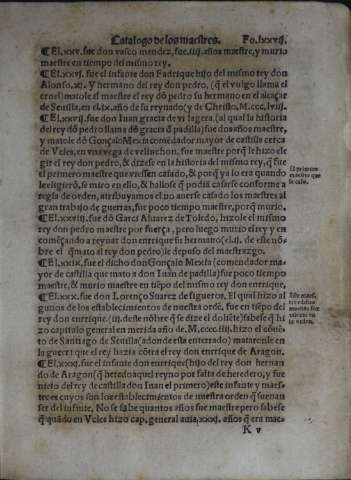 Catalogo de los maestres. Fo. lxxvij.
¶ El .xxv. fue don vasco mendez, fue .iiij. años maestre, y murio
maestre en tiempo del mismo rey.
¶ El .xxvj. fue el infante don Fadrique hijo del mismo rey don
Alonso .xj. Y hermano del rey don pedro, (q̃ el vulgo llama el
cruel) matole al maestre el rey dõ pedro su hermano en el alcaçar
de Seuilla, en el .ix. año de su reynado (y de Christo, M.ccc.lviij.
¶ El .xxvij. fue don Iuan gracia de vi lagera, (al qual la historia
del rey dõ pedro llama dõ gracia đ padilla) fue dos años maestre,
y matole dõ Gonçalo Mexia comẽdador mayor de castilla cerca
de Vcles, en vna vega de velinchon. fue maestre porq̃ le hizo ele
gir el rey don pedro, & dizese en la historia del mismo rey, q̃ fue
el primero maestre que viessen casado, & porq̃ ya lo era quando
le eligierõ, se miro en ello, & hallose q̃ podia casarse conforme a
regla de orden, atribuyamos el no auerse casado los maestres al
gran trabajo de guerras, fue poco tiempo maestre, porq̃ murio,
¶ El .xxviij. fue dõ Garci Aluarez de Toledo, hizole el mismo
rey don pedro maestre por fuerça, pero luego murio el rey y en
começando a reynar don enrrique su hermano (el .ij. de este nõ-
bre el q̃ mato al rey don pedro) le depuso del maestrazgo.
¶ El .xxix. fue el dicho don Gonçalo Mexia (comendador ma-
yor de castilla que mato a don Iuan de padilla) fue poco tiempo
maestre, & murio maestre en tiẽpo del mismo rey don enrrique.
¶ El .xxx. fue don Lorenço Suarez de figueroa, El qual hizo al
gunos de los establecimientos de nuestra ordẽ, fue en tiẽpo del
rey don enrrique (.iij. deste nõbre q̃ se dize el doliẽte) sabese q̃ hi
zo capitulo general en merida año de. M.cccc.iij. hizo el cõuẽ-
to de Santiago de Seuilla (adonde esta enterrado) mataronle en
la guerra que el rey hazia cõtra el rey don enrrique de Aragon.
¶ El .xxxj. fue el infante don enrrique (hijo del rey don hernan
do de Aragõ (q̃ heredo aquel reyno por falta de heredero, y fue
nieto del rey de castilla don Iuan el primero) este infante y maes-
tre es cuyos son los establecimientos de nuestra orden q̃ suenan
ser del infante, No se sabe quantos años fue maestre pero sabese
q̃ quãdo en Vcles hizo cap. general auia .xxxj. años q̃ era mae-
K v
El primero
maestre que
se caso.
Este maes.